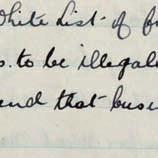 White List of
s. to be illegal
and that busi